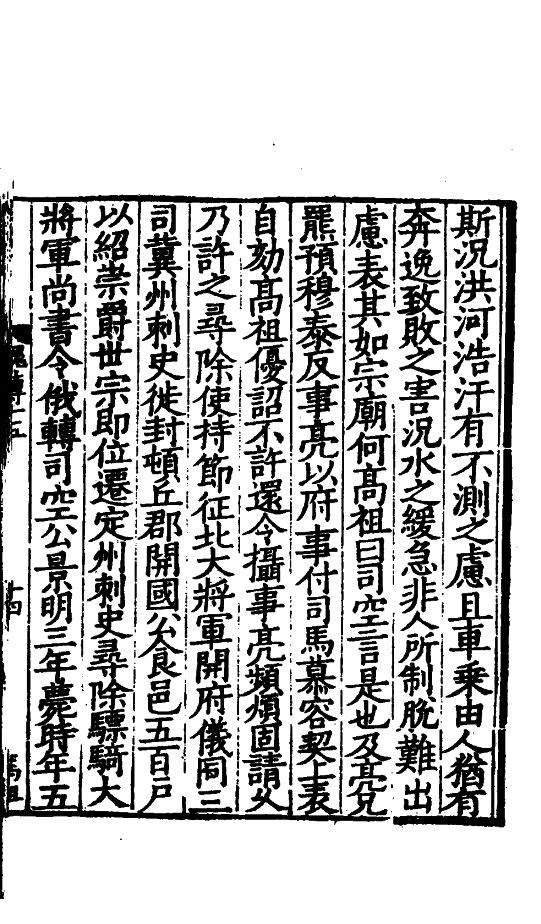 斯況洪河浩汗有不測之慮且車乗由人猶有
奔逸致敗之害況水之緩急非人所制脫難出
慮表其如宗廟何髙祖曰司空言是也及亮兄
羆預穆泰反事亮以府事付司馬慕容契上表
自劾髙祖優詔不許還令攝事亮頻煩固請乆
乃許之尋除使持節征北大將軍開府儀同三
司冀州刺史徙封頓丘郡開國公食邑五百戸
以紹崇爵世宗即位遷定州刺史尋除驃騎大
將軍尚書令俄轉司空公景明三年薨時年五
十四